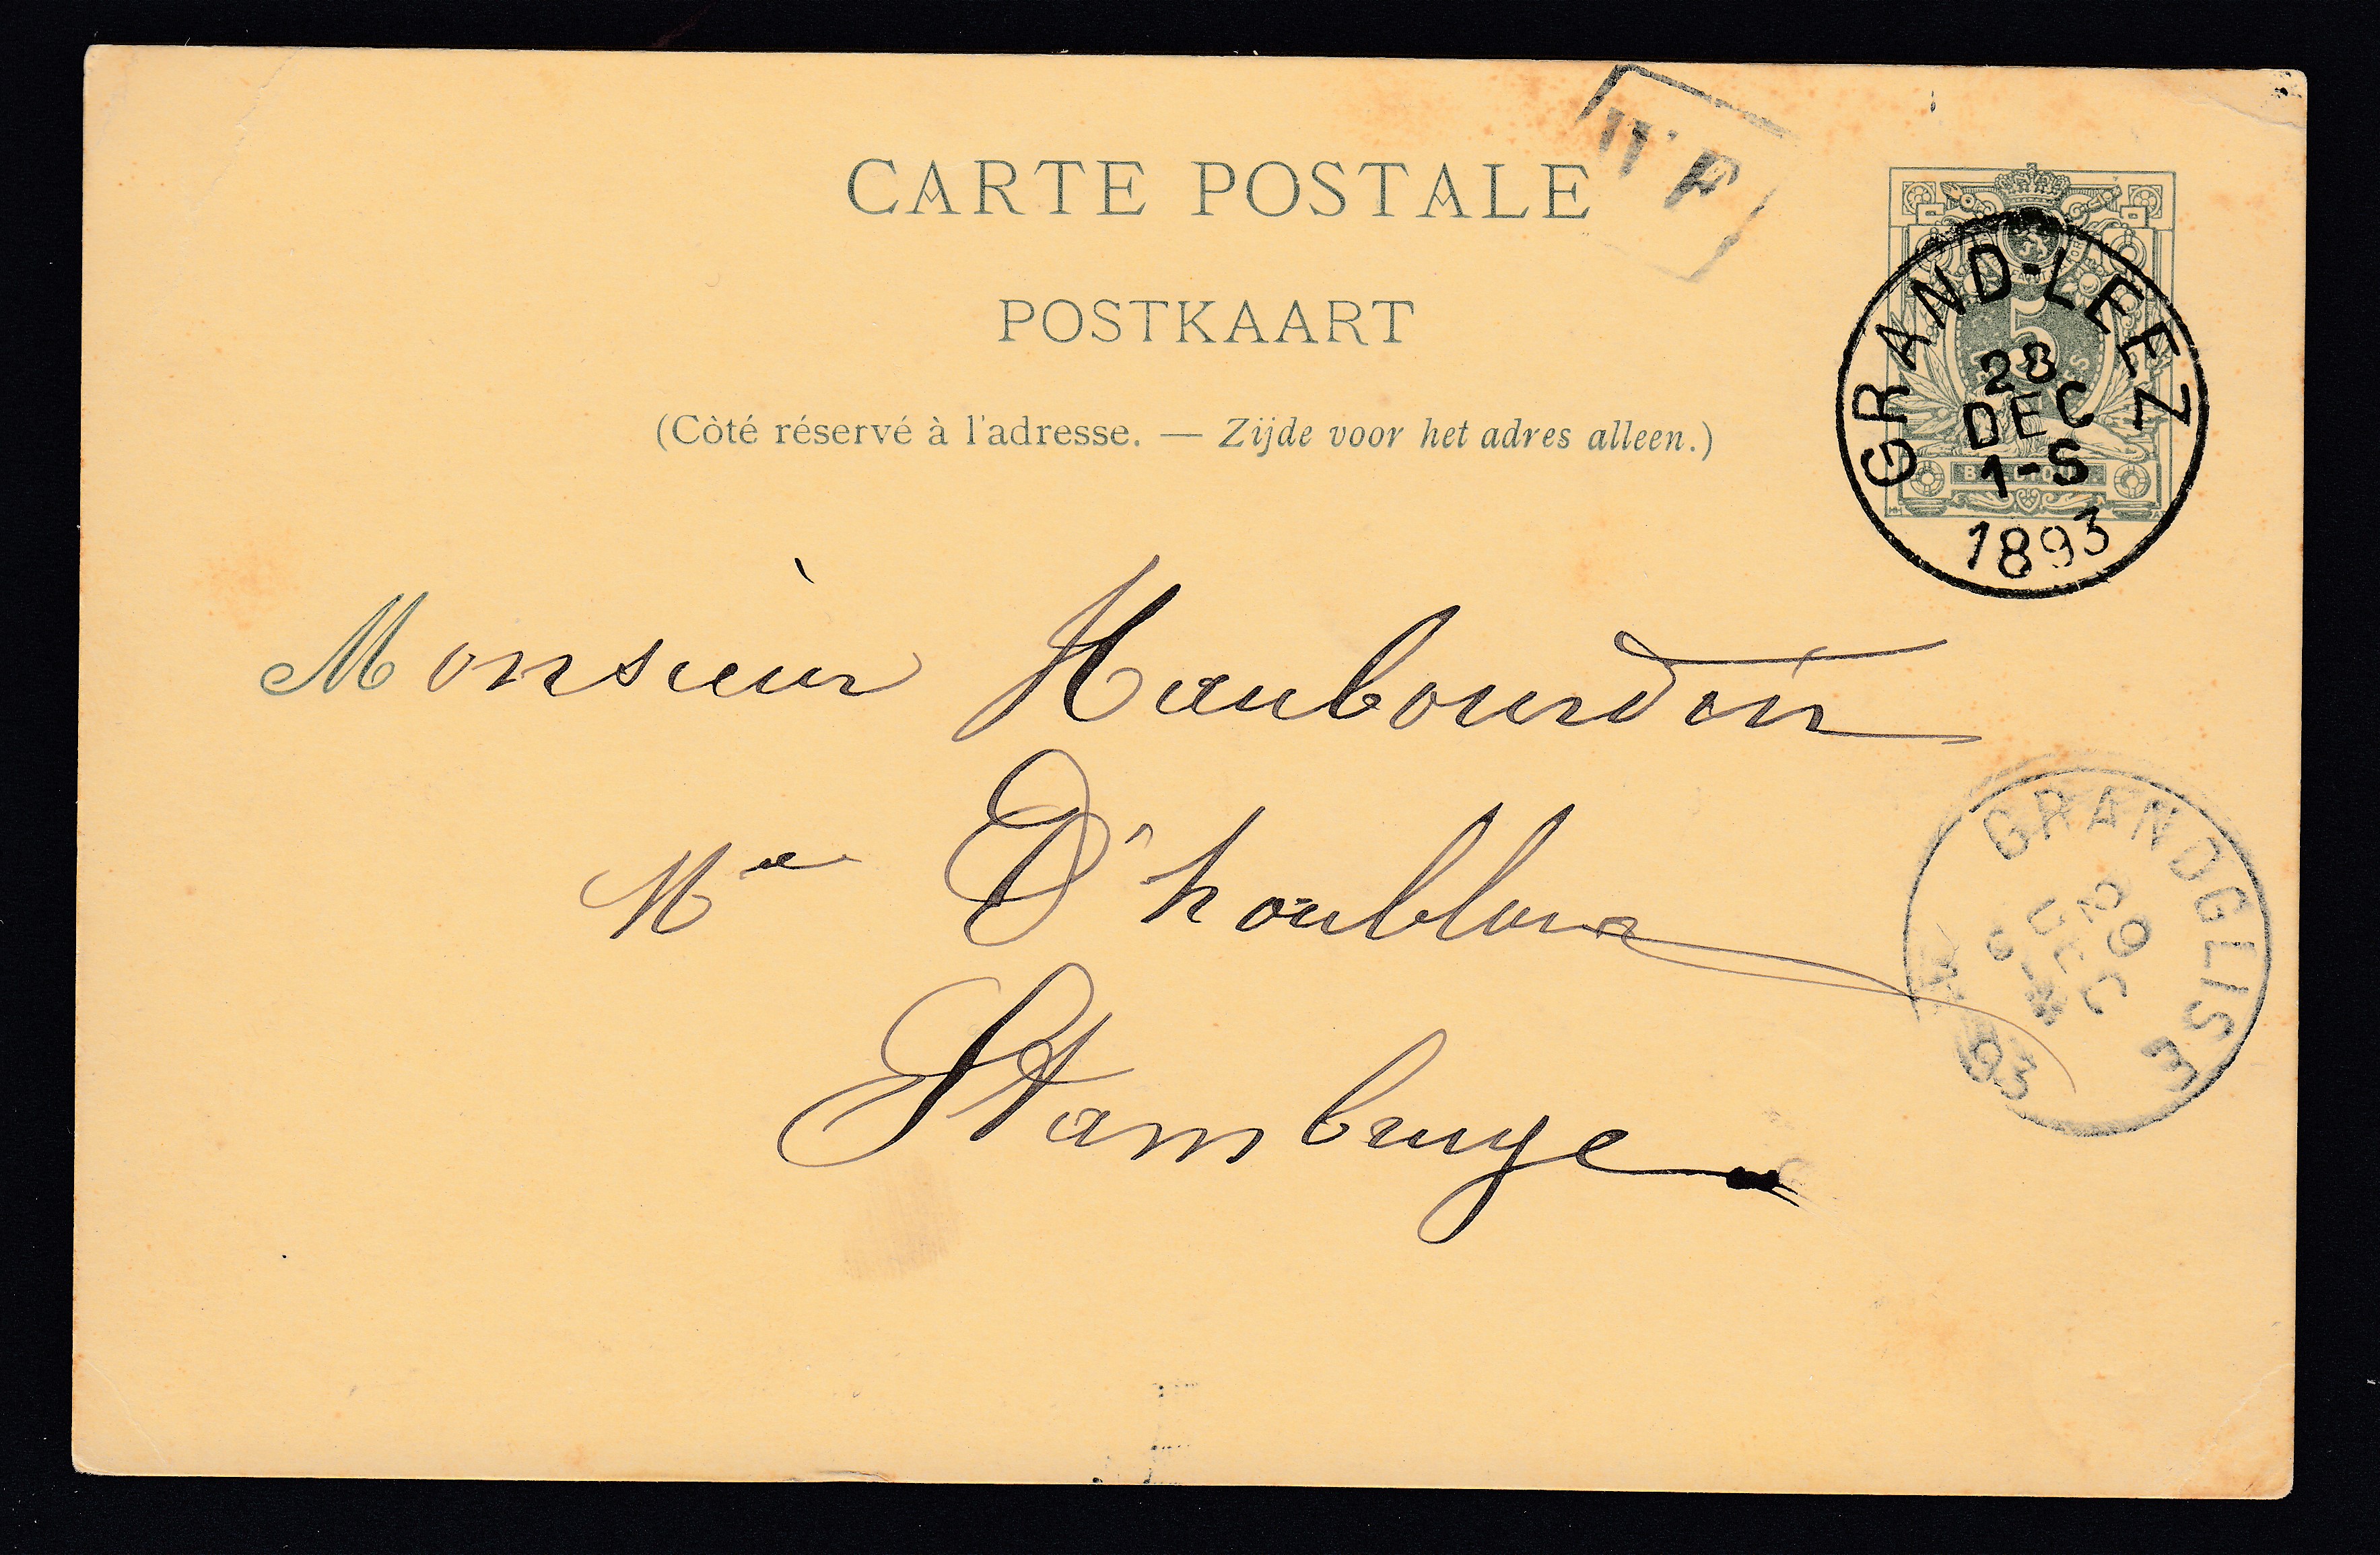 CARTE POSTALE
POSTKAART
(Côté réservé à l'adresse. — Zijde voor het adres alleen.)
5
GRAND-LEEZ
28
DEC
1-S
1893
Monsieur Haubourdin
Md D'houblons
Stambruge
GRANDGLISE
29
DEC
93